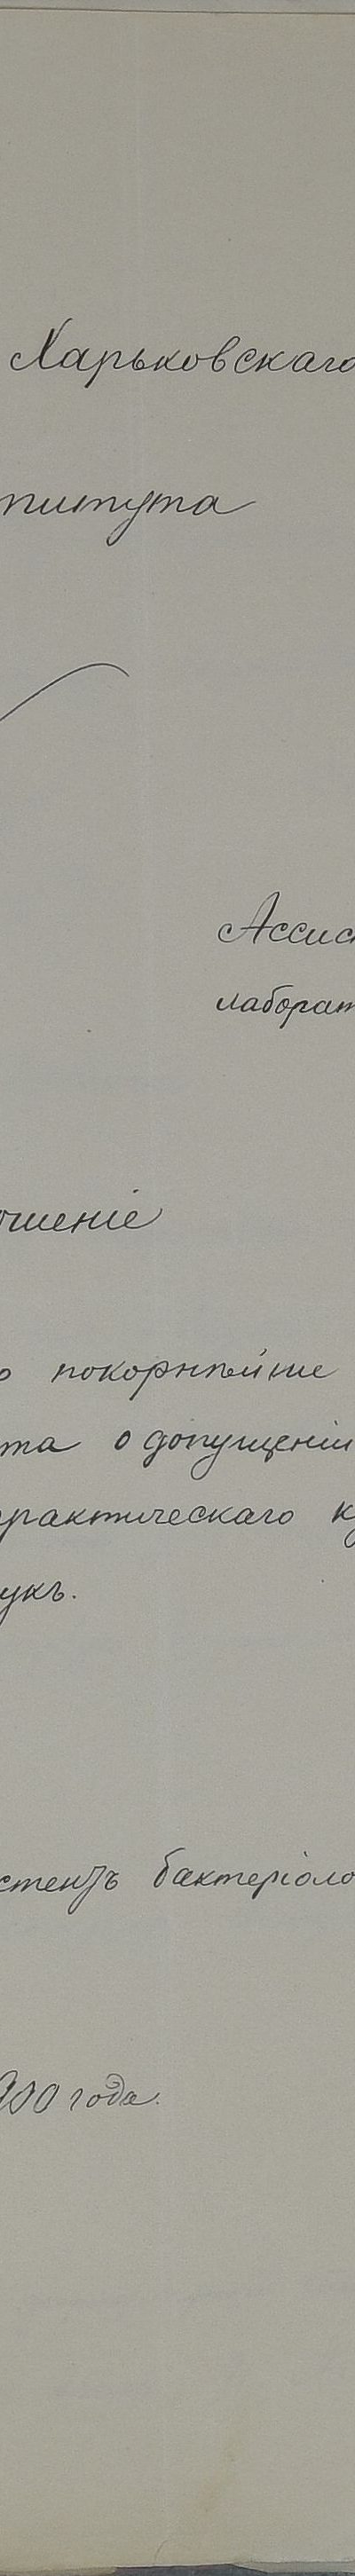 Харьковскаго
титута
Ассис
лаборат
ошеніе
о покорнѣйше
та о допущеніи
практическаго к
укъ.
стентъ бактеріоло
900 года.